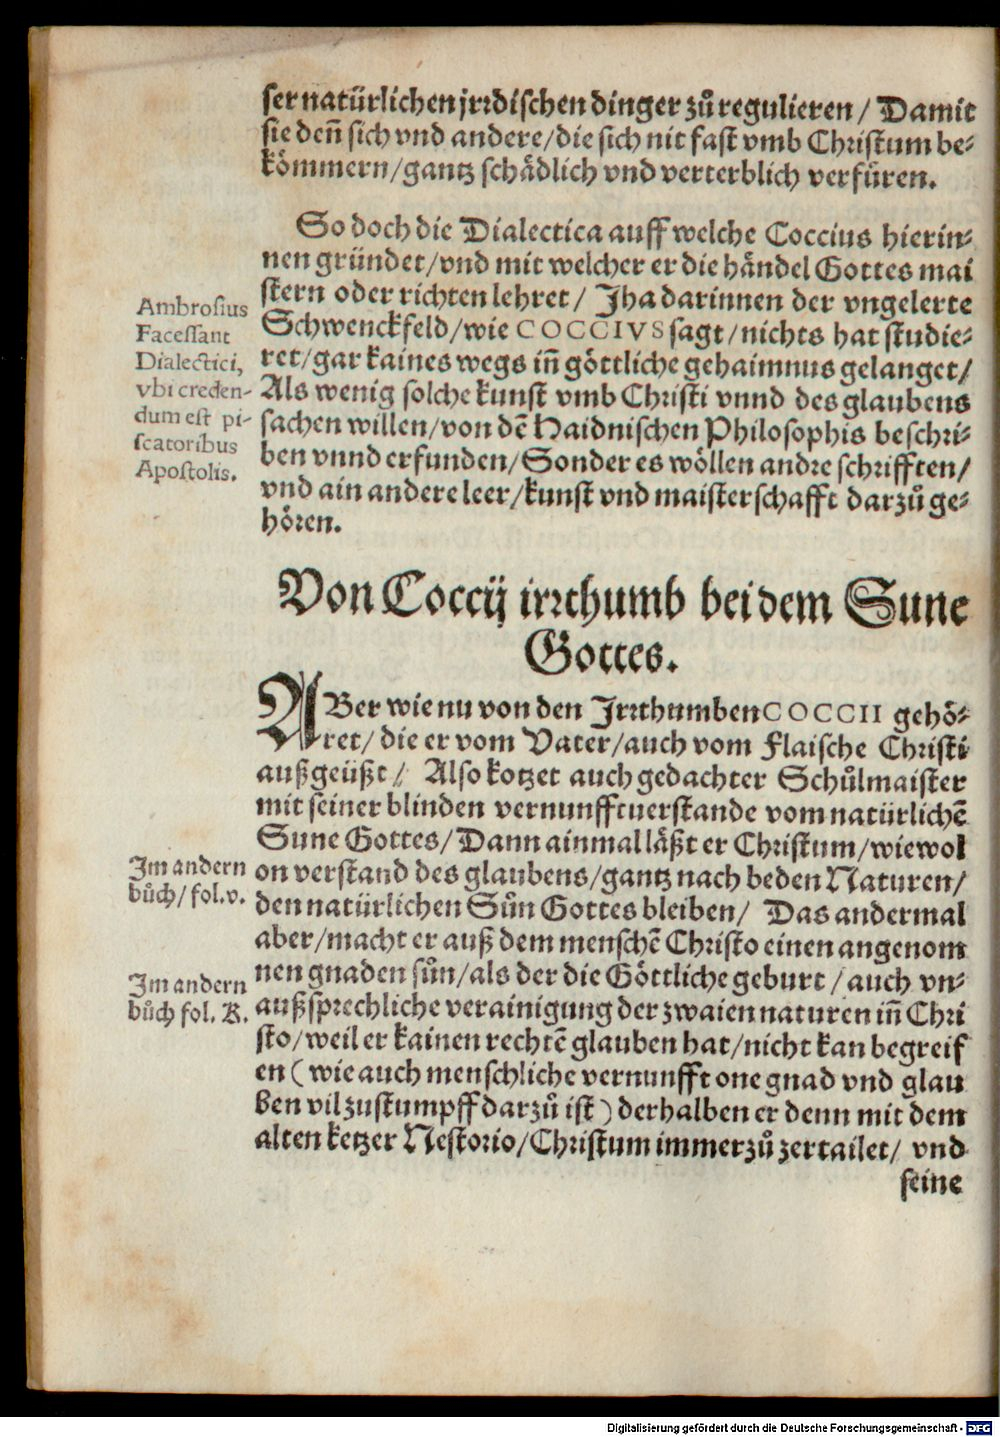 ser natürlichen jrrdischen dinger zů regulieren / Damit
sie deñ sich vnd andere / die sich nit fast vmb Christum be⸗
kömmern / gantz schädlich vnd verterblich verfüren.
So doch die Dialectica auff welche Coccius hierin⸗
nen gründet / vnd mit welcher er die händel Gottes mai
stern oder richten lehret / Jha darinnen der vngelerte
Schwenckfeld / wie COCCIVS sagt / nichts hat studie⸗
ret / gar kaines wegs iñ göttliche gehaimnus gelanget /
Als wenig solche kunst vmb Christi vnnd des glaubens
sachen willen / von dē Haidnischen Philosophis beschri⸗
ben vnnd erfunden / Sonder es wöllen andre schrifften /
vnd ain andere leer / kunst vnd maisterschafft darzů ge⸗
hören.
Ambrosius
Facessant
Dialectici,
vbi creden-
dum est pi-
scatoribus
Apostolis.
Von Coccij irrthumb bei dem Sune
Gottes.
ABer wie nu von den Jrrthumben COCCII gehö⸗
ret / die er vom Vater / auch vom Flaische Christi
außgeüßt / Also kotzet auch gedachter Schůlmaister
mit seiner blinden vernunfftuerstande vom natürlichē
Sune Gottes / Dann ainmal läßt er Christum / wiewol
on verstand des glaubens / gantz nach beden Naturen /
den natürlichen Sůn Gottes bleiben / Das andermal
aber / macht er auß dem menschē Christo einen angenom
nen gnaden sůn / als der die Göttliche geburt / auch vn⸗
außsprechliche verainigung der zwaien naturen iñ Chri
sto / weil er kainen rechtē glauben hat / nicht kan begreif
en ( wie auch menschliche vernunfft one gnad vnd glau
ben vil zustumpff darzů ist ) derhalben er denn mit dem
alten ketzer Nestorio / Christum immerzů zertailet / vnd
seine
Im andern
bůch / fol. v.
Im andern
bůch fol. K.
Digitalisierung gefördert durch die Deutsche Forschungsgemeinschaft - DFG